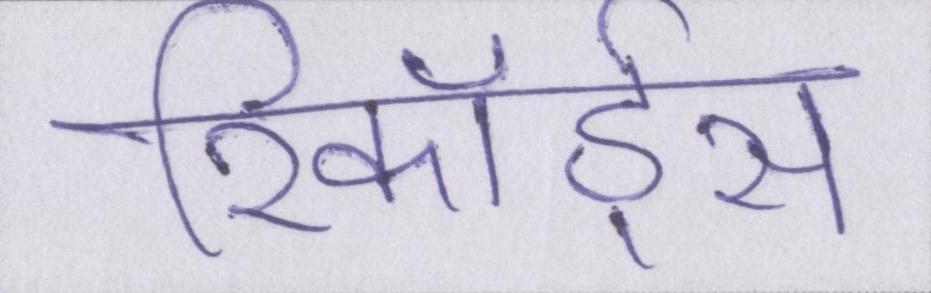 रिकॉर्ड्स